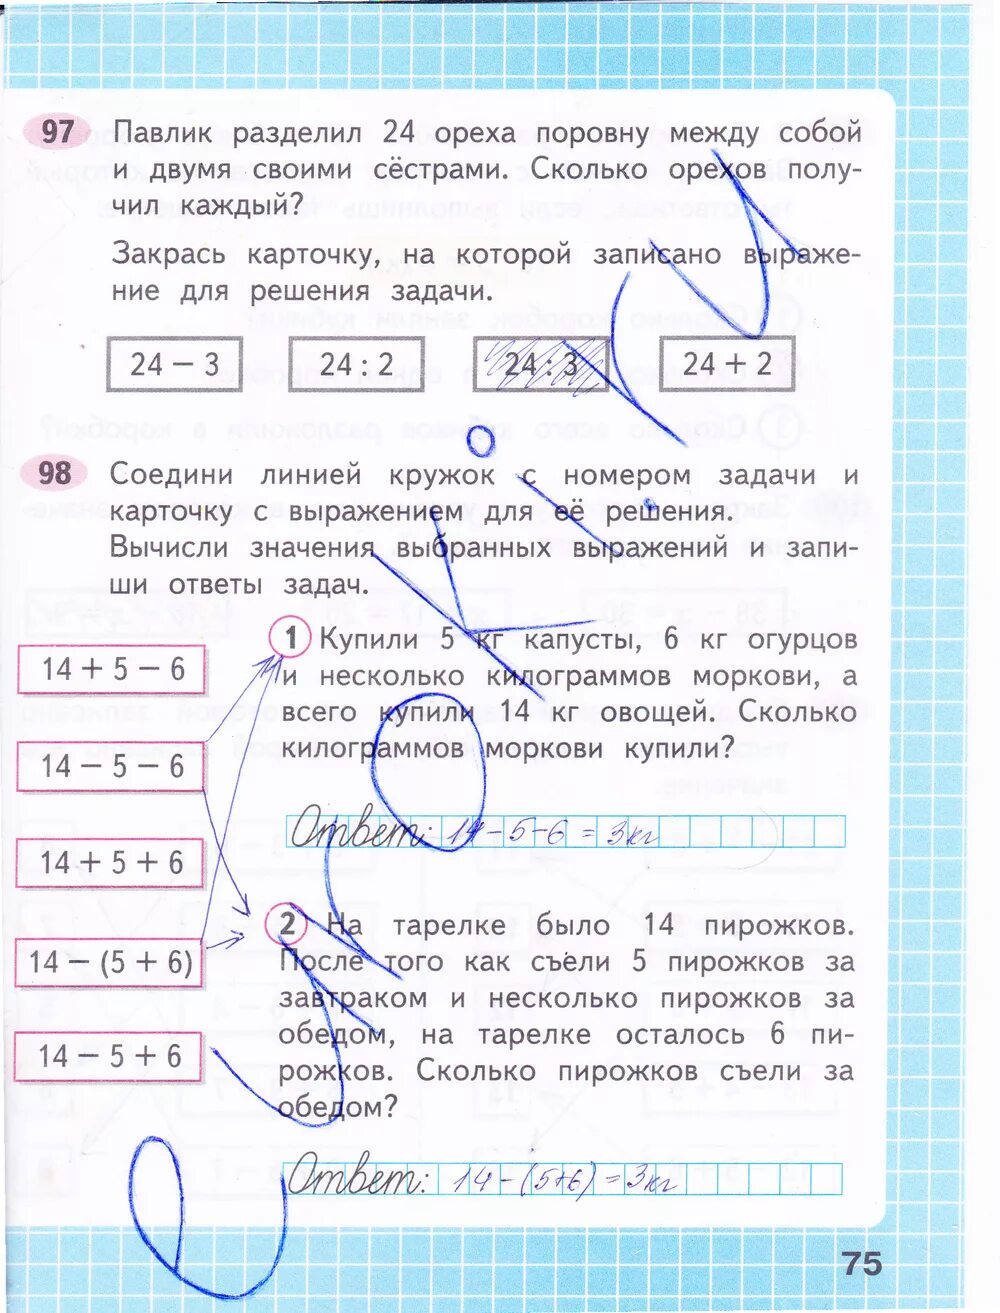 97 Павлик разделил 24 ореха поровну между собой
и двумя своими сёстрами. Сколько орехов полу-
чил каждый?
Закрась карточку, на которой записано выраже-
ние для решения задачи.
24 − 3 24 : 2 24 : 3 24 + 2
98 Соедини линией кружок с номером задачи и
карточку с выражением для её решения.
Вычисли значения выбранных выражений и запи-
ши ответы задач.
14 + 5 − 6
14 − 5 − 6
14 + 5 + 6
14 − (5 + 6)
14 − 5 + 6
1 Купили 5 кг капусты, 6 кг огурцов
и несколько килограммов моркови, а
всего купили 14 кг овощей. Сколько
килограммов моркови купили?
Ответ: 14-5-6 = 3кг
2 На тарелке было 14 пирожков.
После того как съели 5 пирожков за
завтраком и несколько пирожков за
обедом, на тарелке осталось 6 пи-
рожков. Сколько пирожков съели за
обедом?
Ответ: 14-(5+6) = 3кг
75